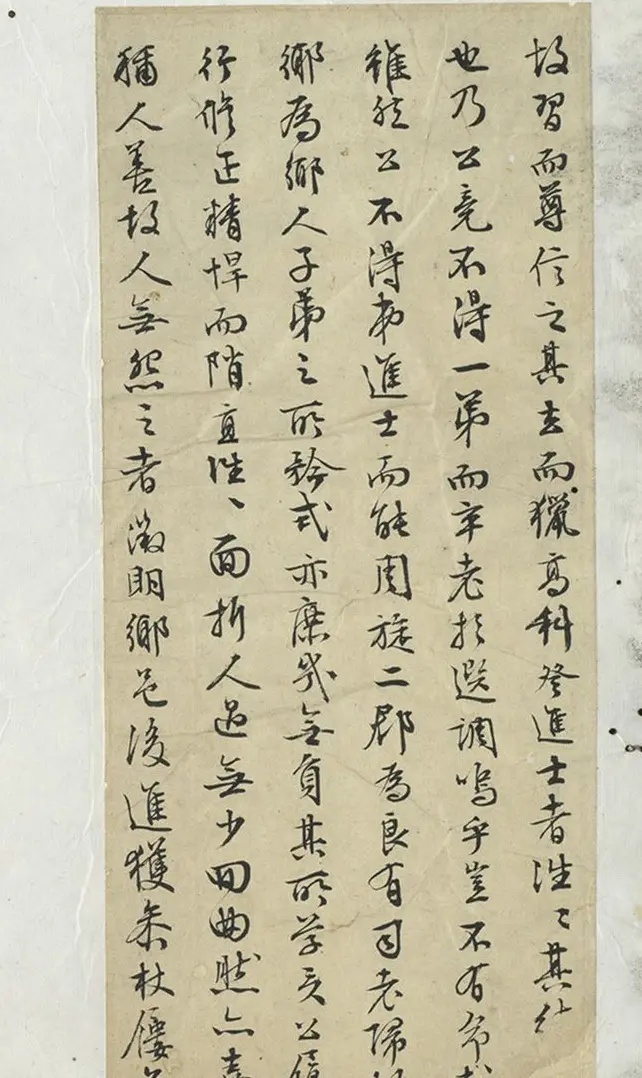 故習而尊信之其去而獵高科登進士者往〻其徒
也乃公竟不得一第而卒老於選調嗚乎豈不有命哉
雖然公不得爲進士而能周旋二郡爲良有司老歸於
鄉爲鄉人子弟之所矜式亦庶幾無負其所學矣公
行脩正精悍而陗直往〻面折人過無少回曲然亦喜
獧人善故人無怨之者徵明鄉邑後進獲奉杖屨